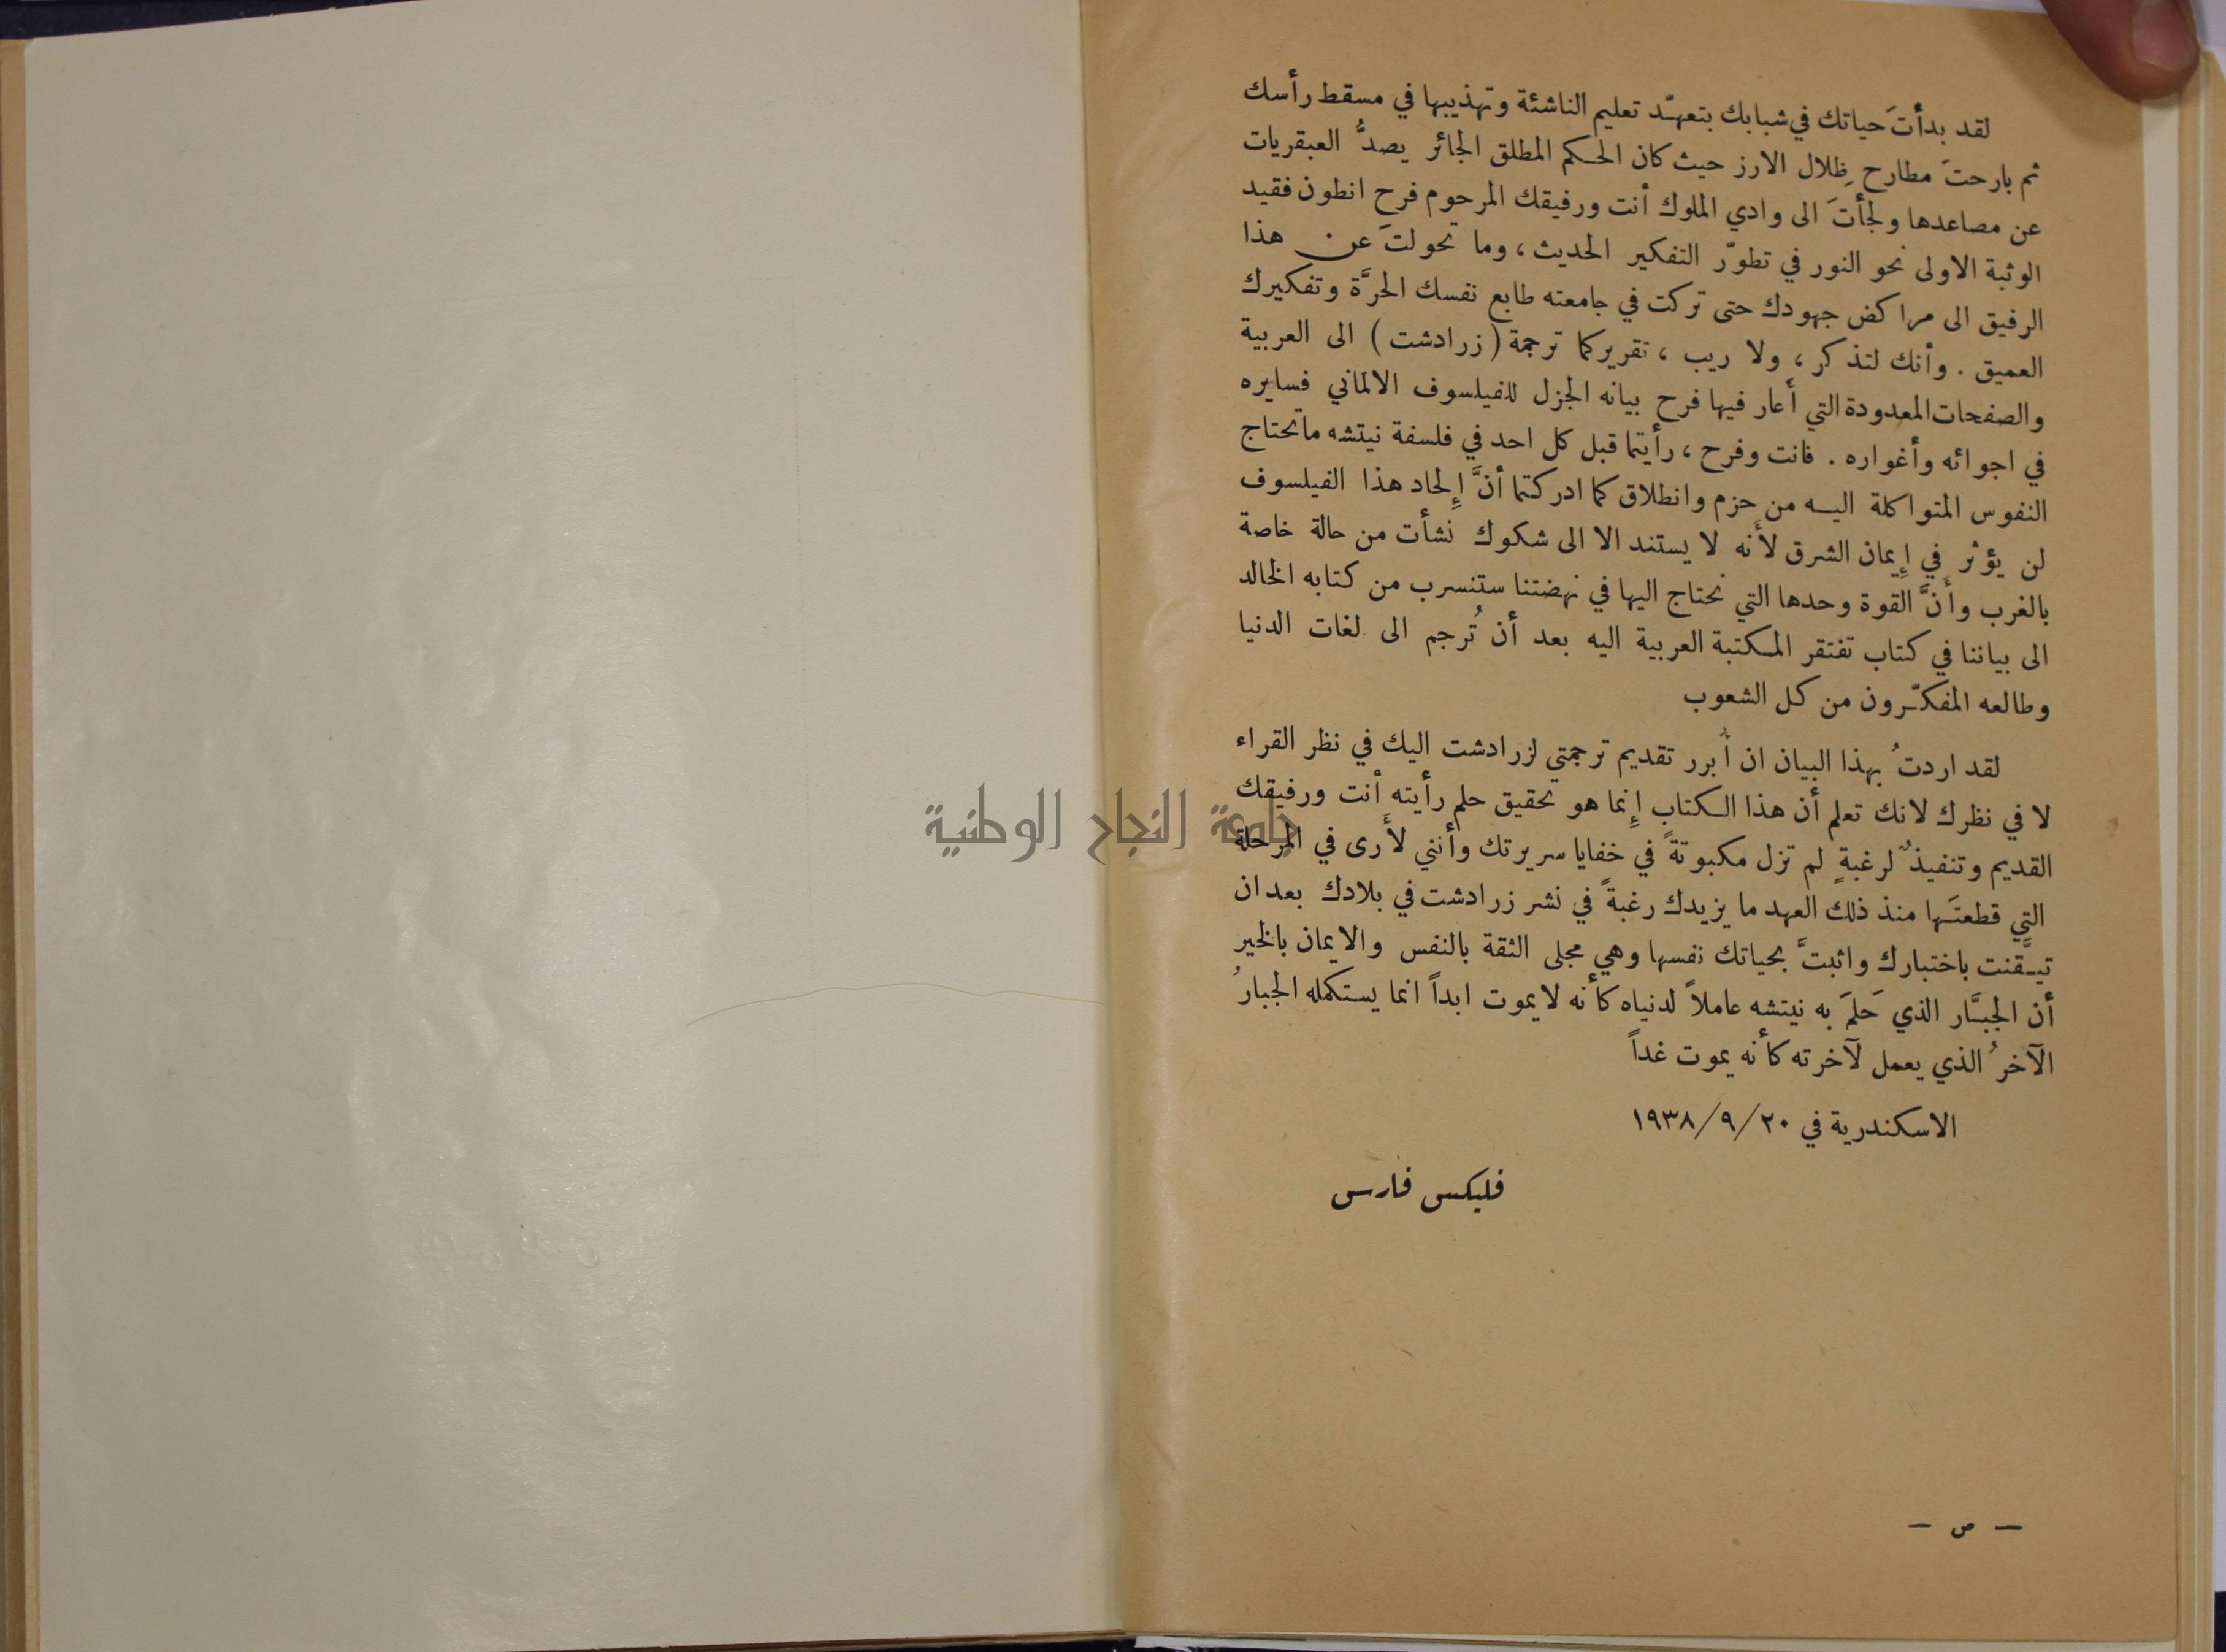 لقد بدأتَ حياتك في شبابك بتعهّد تعليم الناشئة وتهذيبها في مسقط رأسك
ثم بارحتَ مطارح ظِلال الارز حيث كان الحكم المطلق الجائر يصدُّ العبقريات
عن مصاعدها ولجأتَ الى وادي الملوك أنت ورفيقك المرحوم فرح انطون فقيد
الوثبة الاولى نحو النور في تطوّر التفكير الحديث، وما تحولتَ عن هذا
الرفيق الى مراكض جهودك حتى تركت في جامعته طابع نفسك الحرَّة وتفكيرك
العميق. وأنك لتذكر، ولا ريب، تقريركما ترجمة (زرادشت) الى العربية
والصفحات المعدودة التي أعار فيها فرح بيانه الجزل للفيلسوف الالماني فسايره
في اجوائه وأغواره. فانت وفرح، رأيتما قبل كل احد في فلسفة نيتشه ماتحتاج
النفوس المتواكلة اليه من حزم وانطلاق كما ادركتما أنَّ إِلحاد هذا الفيلسوف
لن يؤثر في إِيمان الشرق لأَنه لا يستند الا الى شكوك نشأت من حالة خاصة
بالغرب وأَنَّ القوة وحدها التي نحتاج اليها في نهضتنا ستنسرب من كتابه الخالد
الى بياننا في كتاب تفتقر المكتبة العربية اليه بعد أن تُرجم الى لغات الدنيا
وطالعه المفكّرون من كل الشعوب
لقد اردتُ بهذا البيان ان أبرر تقديم ترجمتي لزرادشت اليك في نظر القراء
لا في نظرك لانك تعلم أن هذا الكتاب إِنما هو تحقيق حلم رأيته أنت ورفيقك
القديم وتنفيذٌ لرغبةٍ لم تزل مكبوتةً في خفايا سريرتك وأنني لأَرى في المرحلة
التي قطعتَها منذ ذلك العهد ما يزيدك رغبةً في نشر زرادشت في بلادك بعد ان
تيقَّنت باختبارك واثبتَّ بحياتك نفسها وهي مجلى الثقة بالنفس والايمان بالخير
أن الجبَّار الذي حَلمَ به نيتشه عاملاً لدنياه كأنه لايموت ابداً انما يستكمله الجبارُ
الآخرُ الذي يعمل لآخرته كأنه يموت غداً
الاسكندرية في ٢٠/٩/١٩٣٨
فليكس فارس
— ص —
جامعة النجاح الوطنية